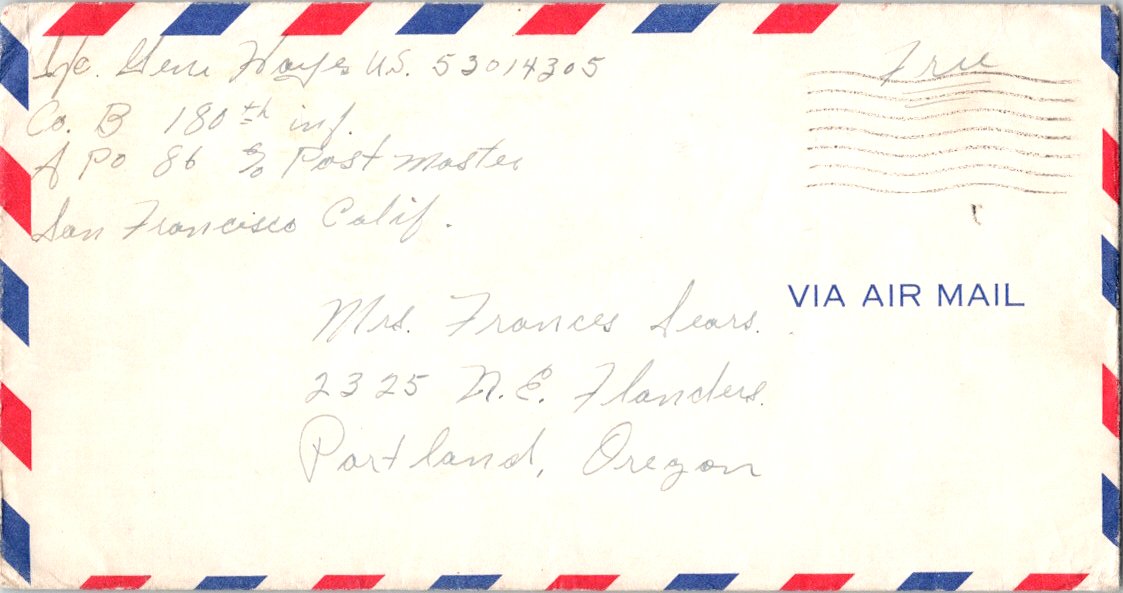 Sfc. Gene Hayes U.S. 53014305
Free
Co. B 180th inf.
A Po 86 c/o Post master
San Francisco Calif.
VIA AIR MAIL
Mrs. Frances Sears.
2325 N.E. Flanders.
Portland, Oregon